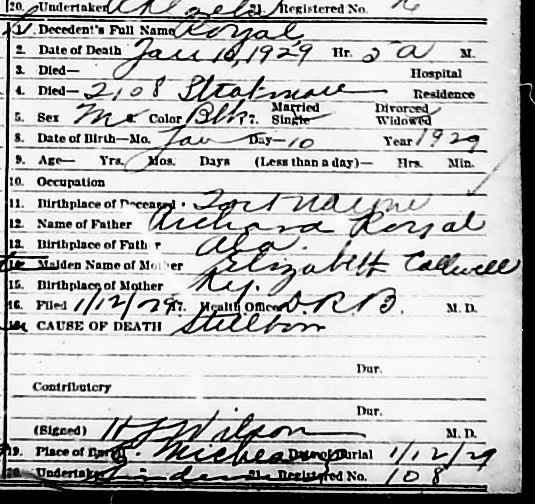 20. Undertaker 21. Registered No.
1. Decedent's Full Name Royal
2. Date of Death Jan 10, 1929 Hr. 5 a M.
3. Died— Hospital
4. Died— 2108 Residence
5. Sex M 6. Color Blk 7. Married Single Divorced Widowed
8. Date of Birth—Mo. Jan Day—10 Year 1929
9. Age— Yrs. Mos. Days (Less than a day)— Hrs. Min.
10. Occupation
11. Birthplace of Deceased Fort Wayne
12. Name of Father Richard Royal
13. Birthplace of Father Ala.
14. Maiden Name of Mother Elizabeth Caldwell
15. Birthplace of Mother Ky.
16. Filed 1/12/29 17. Health Officer D.R.B. M. D.
18. CAUSE OF DEATH Stillborn
Dur.
Contributory
Dur.
(Signed) Wilson M. D.
19. Place of Burial Date of Burial 1/12/29
20. Undertaker 21. Registered No. 108